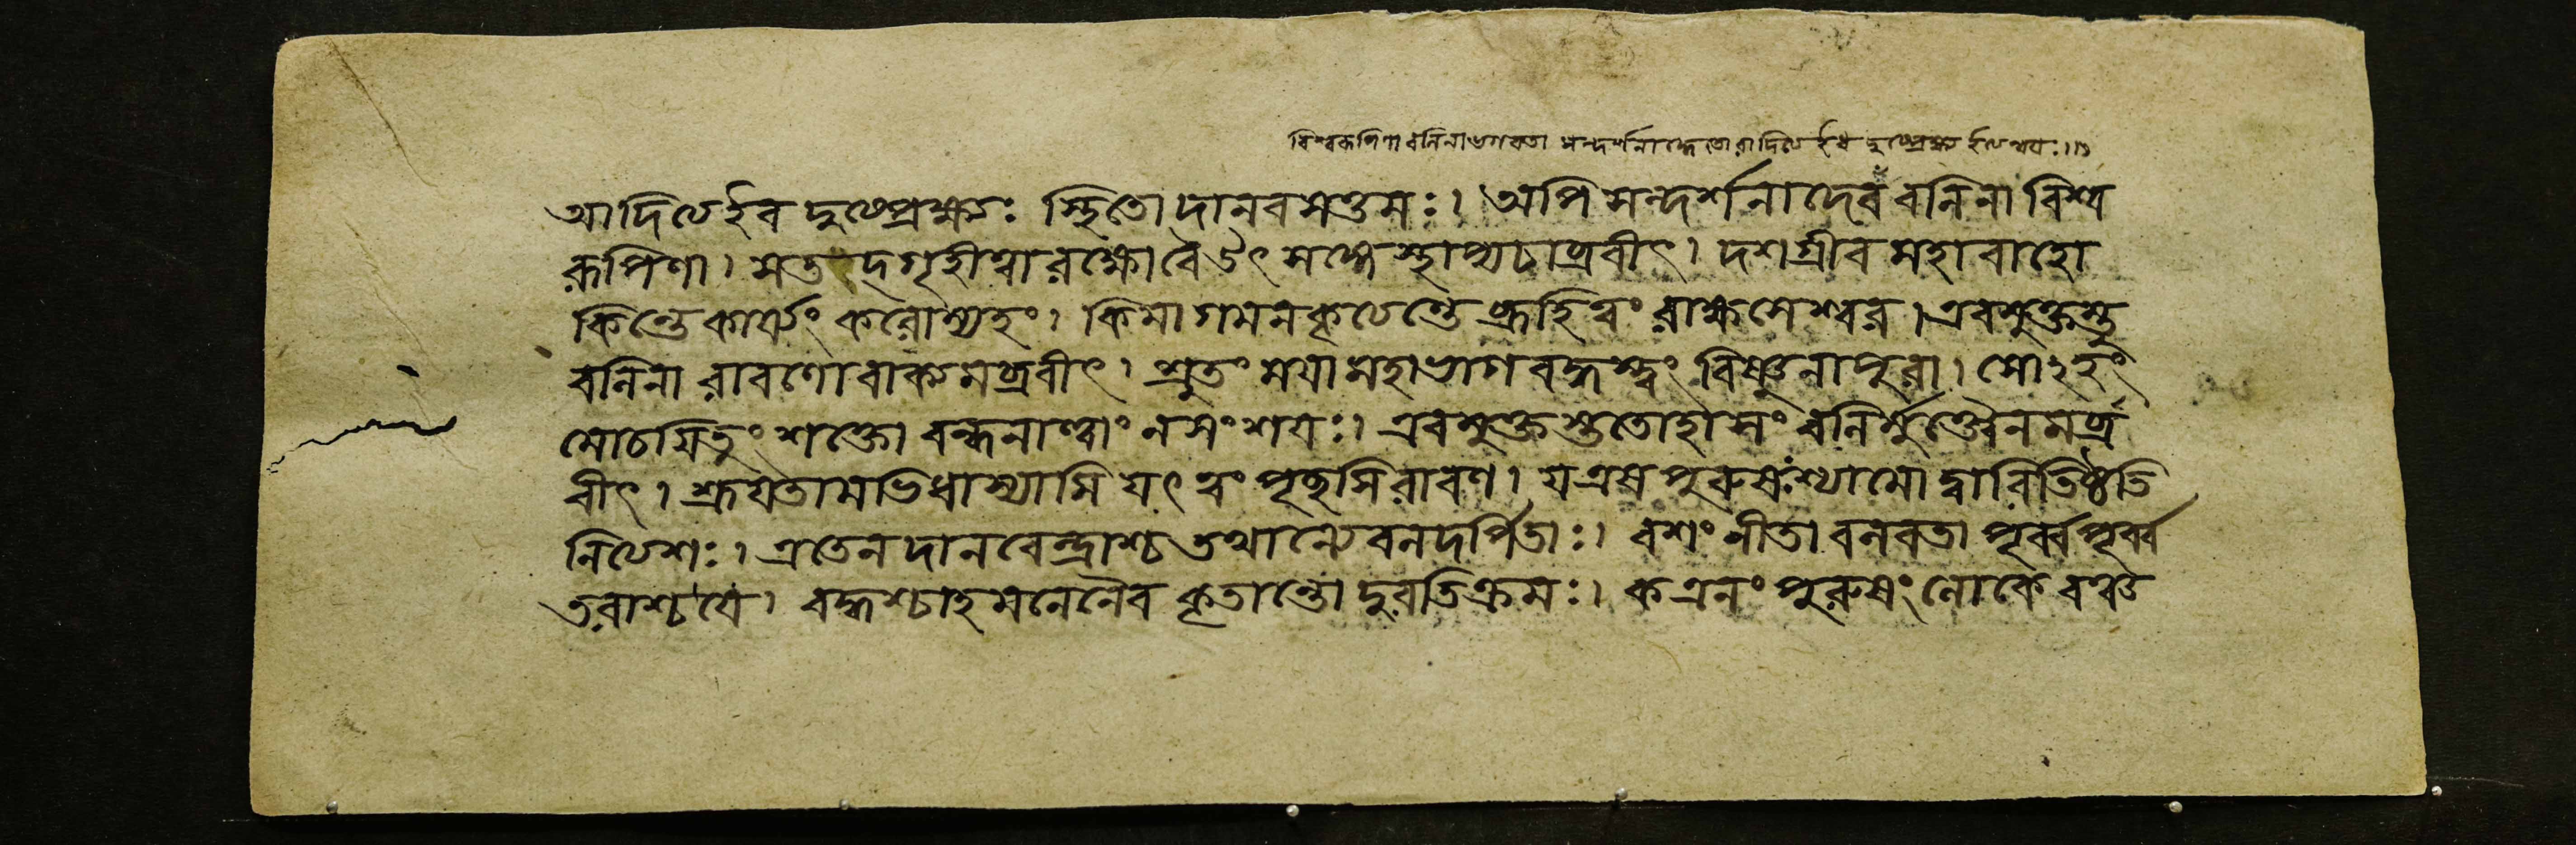 বিশ্বরূপিণা বলিনা ভগবতা সন্দর্শনাদ্ধেতোরাদিত্য ইব দুষ্প্রেক্ষ্য ইত্যন্বয়ঃ।।১
আদিত্য ইব দুষ্প্রেক্ষ্যঃ স্থিতো দানবসত্তমঃ। অপি সন্দর্শনাদেব বলিনা বিশ্ব
রূপিণা। স তু তদ্গৃহীত্বা রক্ষো বৈ উৎসঙ্গে স্থাপ্য চাব্রবীৎ। দশগ্রীব মহাবাহো
কিন্তে কার্য্যং করোম্যহং। কিমাগমনকৃত্যন্তে ব্রূহি ত্বং রাক্ষসেশ্বর। এবমুক্তস্তু
বলিনা রাবণো বাক্যমব্রবীৎ। শ্রুতং ময়া মহাভাগ বদ্ধস্ত্বং বিষ্ণুনা পুরা। সোঽহং
মোচয়িতুং শক্তো বন্ধনাত্ত্বাং ন সংশয়ঃ। এবমুক্তস্ততো হাসং বলির্মুক্ত্বৈনমব্র
বীৎ। শ্রূয়তামভিধাস্যামি যৎ ত্বং পৃচ্ছসি রাবণ। য এষ পুরুষঃ শ্যামো দ্বারি তিষ্ঠতি
নিত্যশঃ। এতেন দানবেন্দ্রাশ্চ তথান্যে বলদর্পিতাঃ। বশং নীতা বলবতা পূর্ব্বে পূর্ব্ব
তরাশ্চ যে। বদ্ধশ্চাহমনেনৈব কৃতান্তো দুরতিক্রমঃ। ক এনং পুরুষং লোকে বঞ্চ